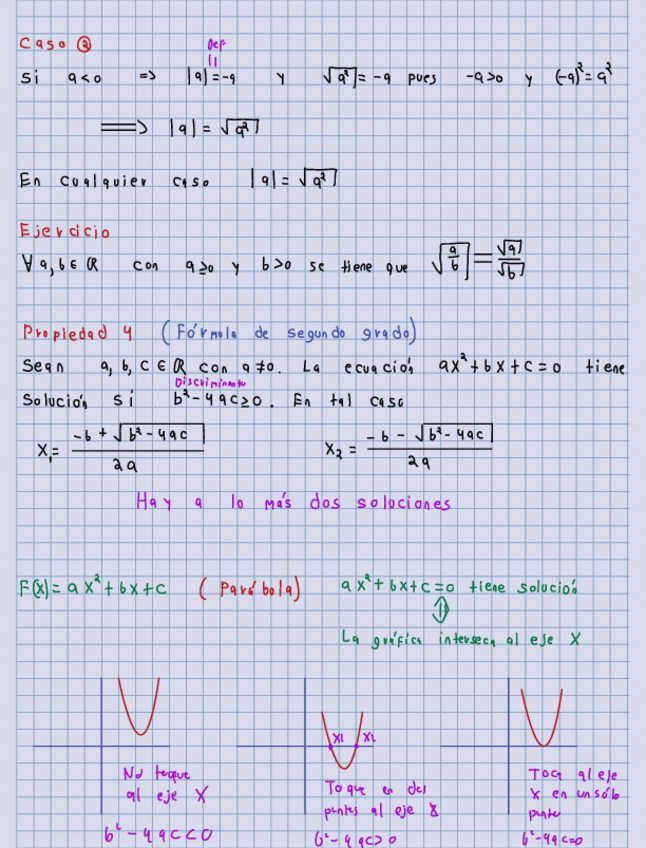 Caso ②
Def
||
Si a<0 => |a|=-a y √a² = -a pues -a>0 y (-a)²=a²
⟹ |a| = √a²
En cualquier caso |a| = √a²
Ejercicio
∀ a,b ∈ ℝ con a≥0 y b>0 se tiene que √(a/b) = √a/√b
Propiedad 4 (Fórmula de segundo grado)
Sean a, b, c ∈ ℝ con a≠0. La ecuación ax²+bx+c=0 tiene
Discriminante
Solución si b²-4ac≥0. En tal caso
X₁ = (-b + √(b²-4ac))/2a X₂ = (-b - √(b²-4ac))/2a
Hay a lo más dos soluciones
F(x)= ax²+bx+c (Parábola) ax²+bx+c=0 tiene solución
⇕
La gráfica interseca al eje X
X1 X2
No toque
al eje X
b²-4ac<0
Toque en dos
puntos al eje X
b²-4ac>0
Toca al eje
X en un sólo
punto
b²-4ac=0